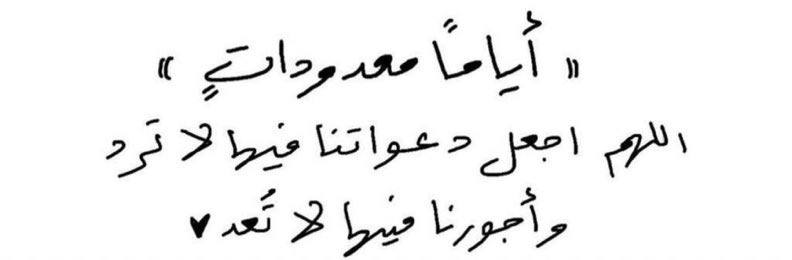 « أيامًا معدوداتٍ »
اللهم اجعل دعواتنا فيها لا ترد
وأجورنا فيها لا تُعد ♥